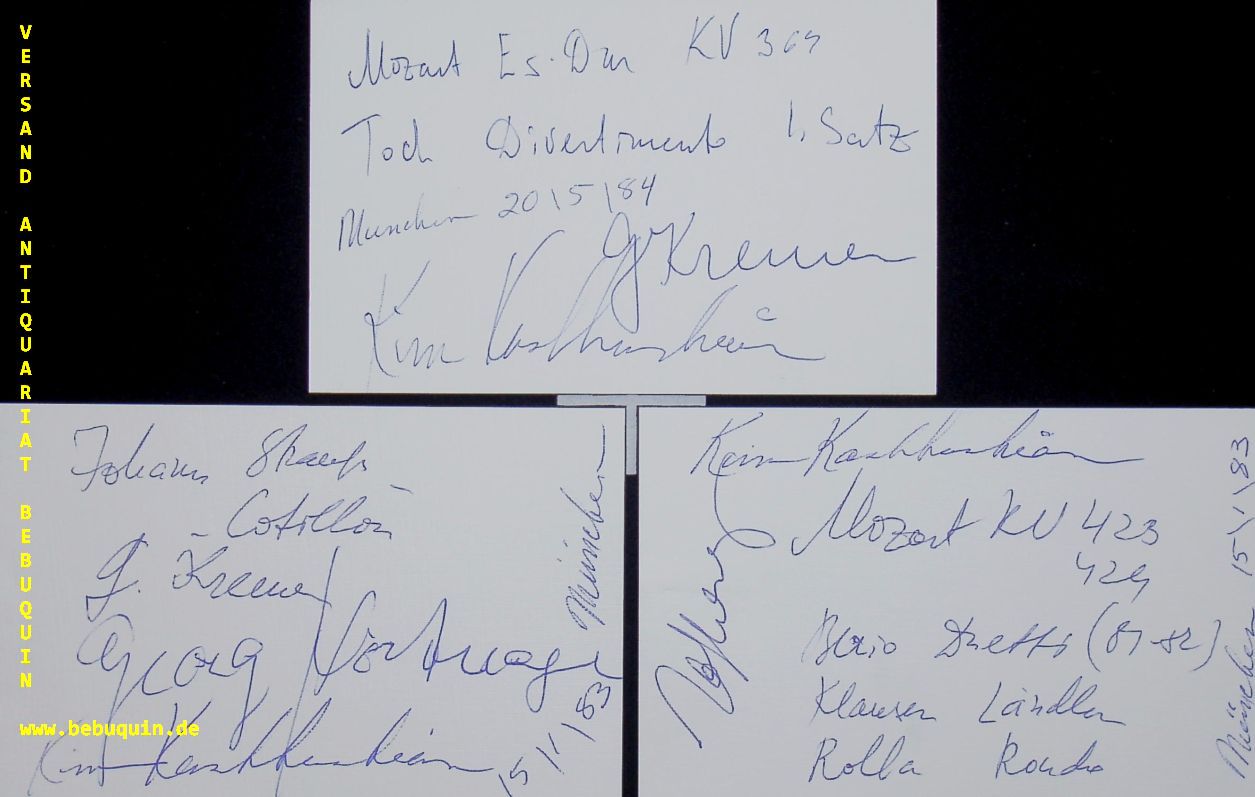 VERSAND ANTIQUARIAT BEBUQUIN
www.bebuquin.de
Mozart Es-Dur KV 364
Toch Divertimento 1. Satz
München 20/5/84
G Kremer
Kim Kashkashian
Johann Strauß
- Cotillon -
G. Kremer
Georg
Kim Kashkashian
15/11/83 München
Kim Kashkashian
Mozart KV 423
424
Berio Duetti (81-82)
Klauser Ländler
Rolla Rondo
München 15/11/83